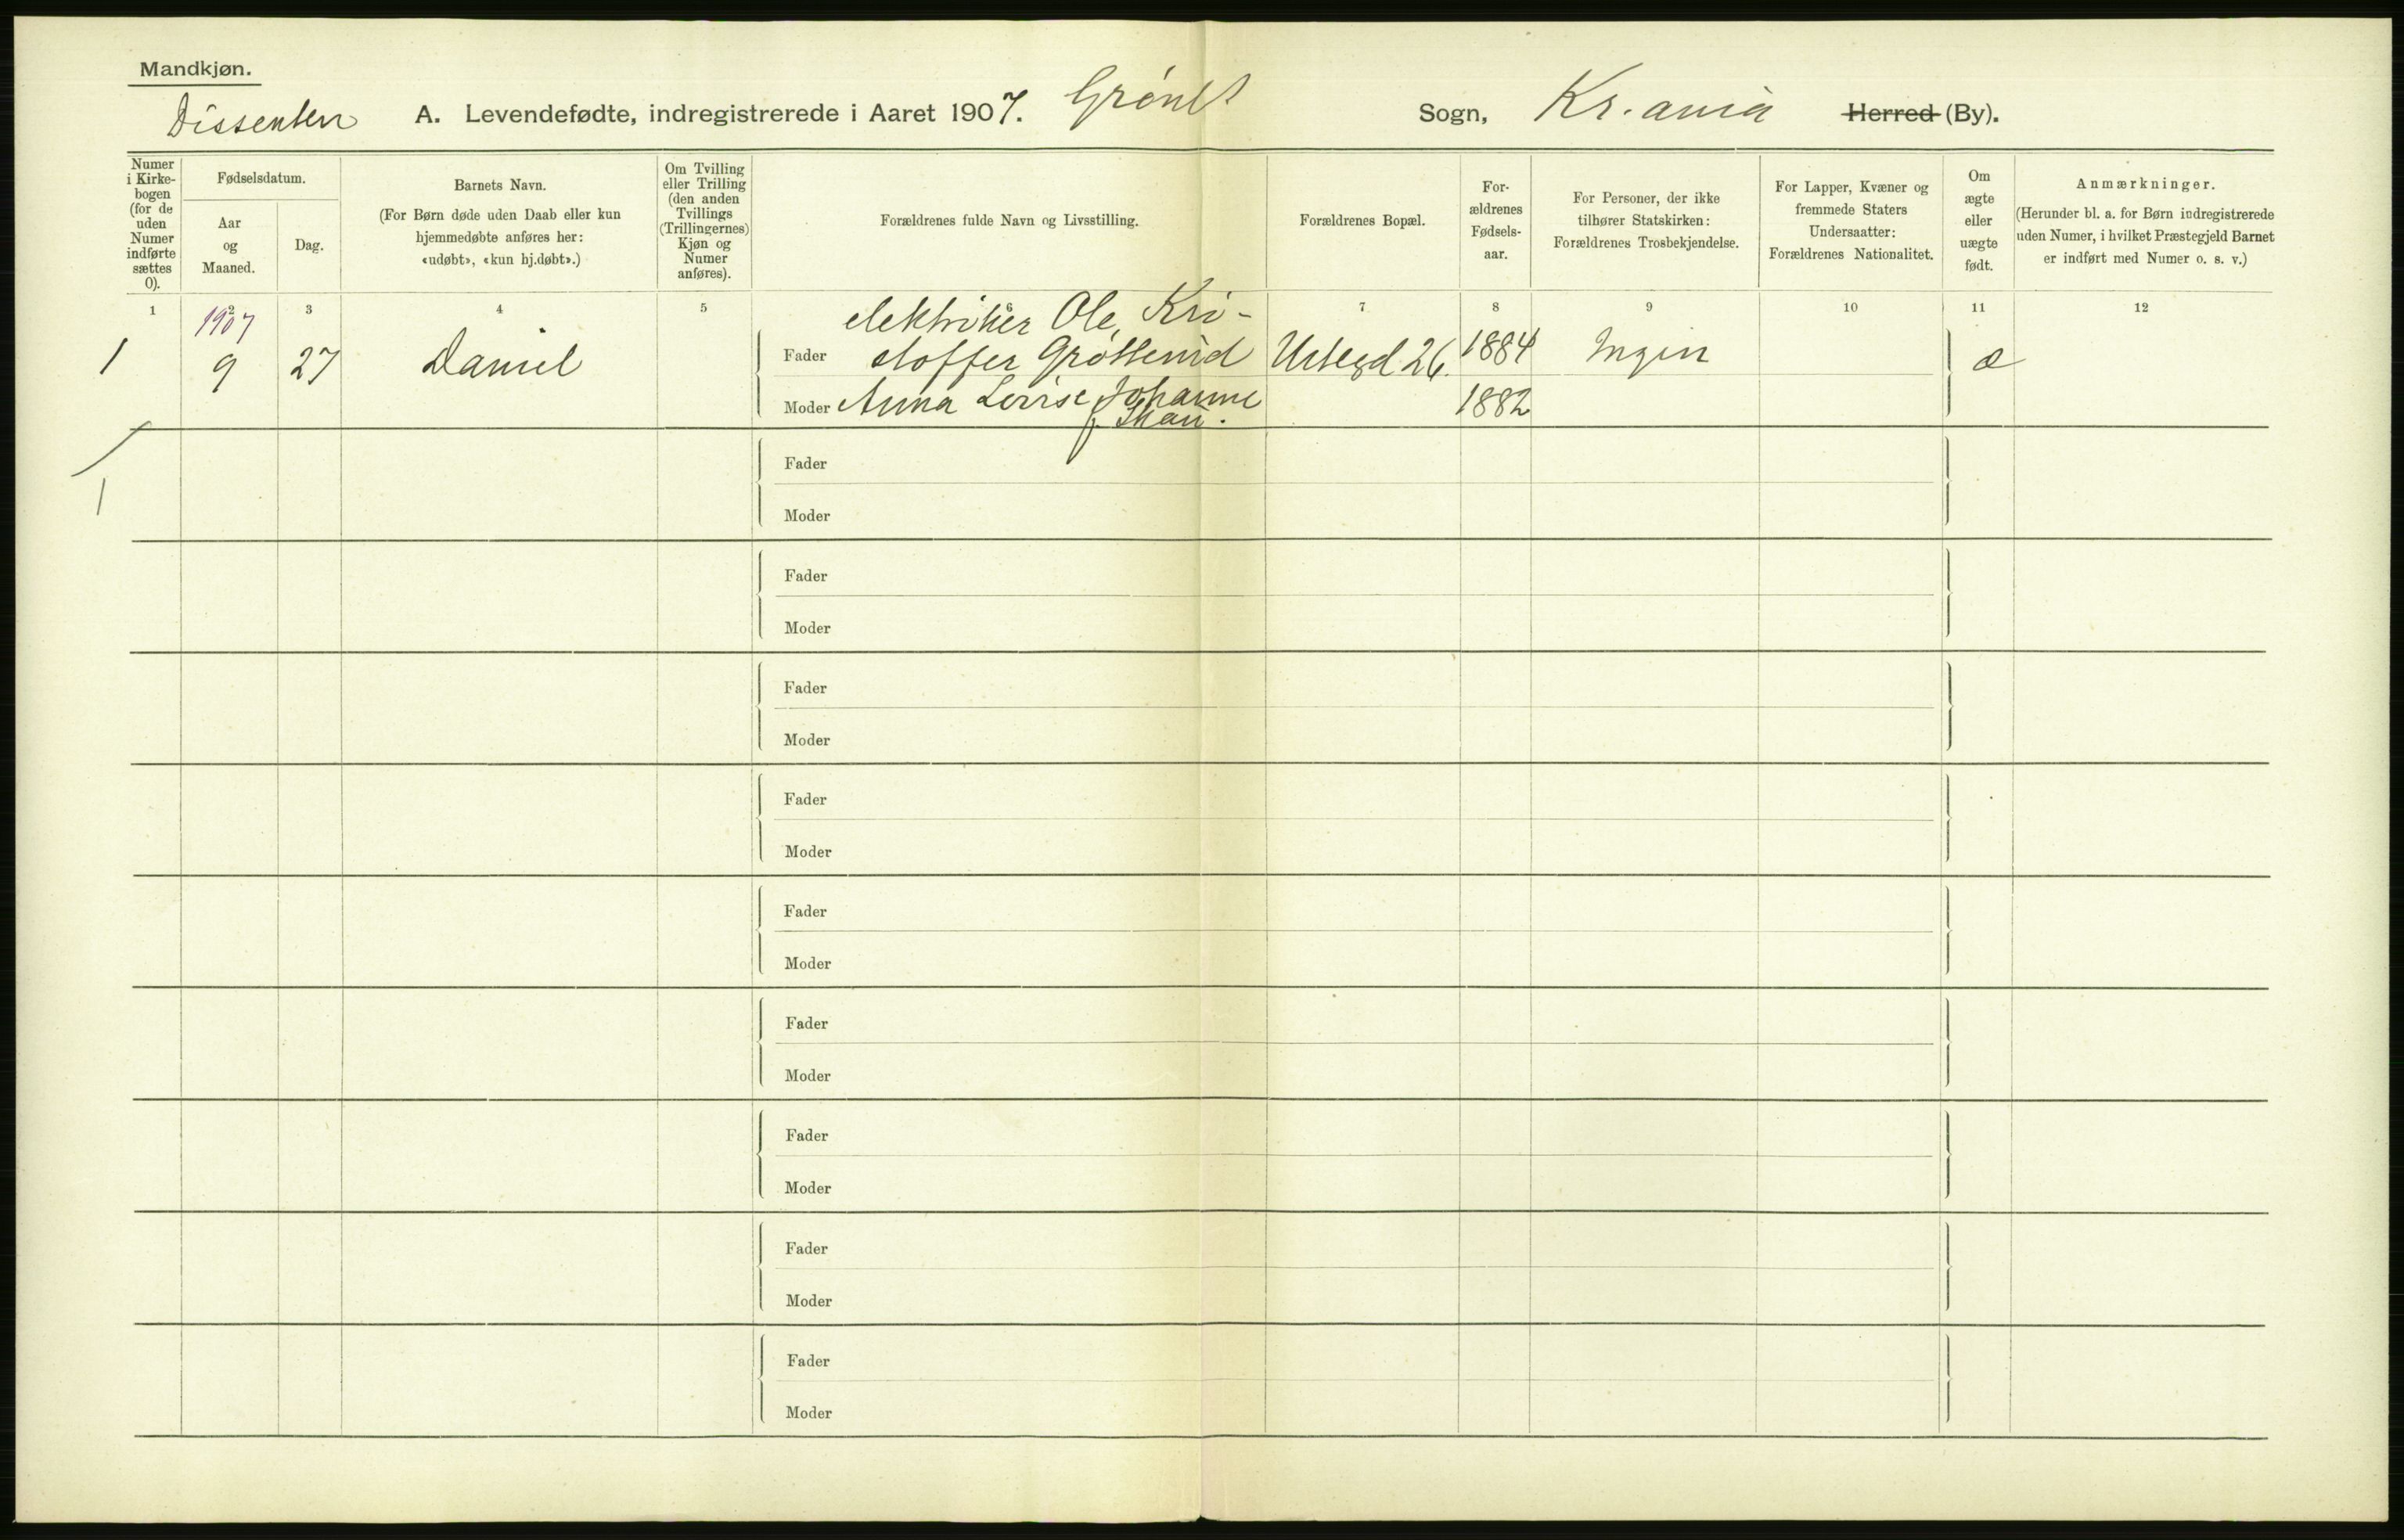 Mandkjøn.
Dissentere A. Levendefødte, indregistrerede i Aaret 1907. Grønl Sogn, Kr.ania Herred (By).
Numer i Kirkebogen (for de uden Numer indførte sættes 0).
Fødselsdatum.
Aar og Maaned.
Dag.
Barnets Navn.
(For Børn døde uden Daab eller kun
hjemmedøbte anføres her:
«udøbt», «kun hj.døbt».)
Om Tvilling
eller Trilling
(den anden
Tvillings
(Trillingernes)
Kjøn og
Numer
anføres).
Forældrenes fulde Navn og Livsstilling.
Forældrenes Bopæl.
For-
ældrenes
Fødsels-
aar.
For Personer, der ikke
tilhører Statskirken:
Forældrenes Trosbekjendelse.
For Lapper, Kvæner og
fremmede Staters
Undersaatter:
Forældrenes Nationalitet.
Om
ægte
eller
uægte
født.
Anmærkninger.
(Herunder bl. a. for Børn indregistrerede
uden Numer, i hvilket Præstegjeld Barnet
er indført med Numer o. s. v.)
1 2 3 4 5 6 7 8 9 10 11 12
1907
elektriker Ole, Kri-
1 9 27 Daniel Fader stoffer Grøtterud Urtegd 26. 1884 Ingen æ
Moder Anna Lovise Johanne 1882
f. Skau.
1
Fader
Moder
Fader
Moder
Fader
Moder
Fader
Moder
Fader
Moder
Fader
Moder
Fader
Moder
Fader
Moder
Fader
Moder